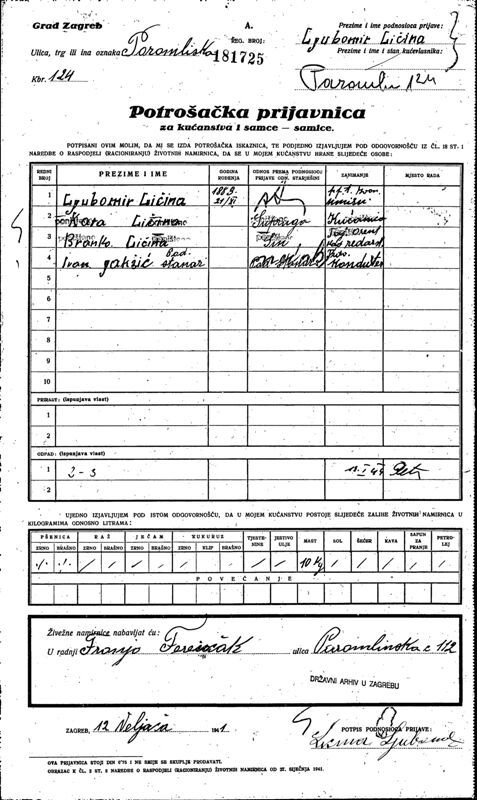 Grad Zagreb
A.
Prezime i ime podnosioca prijave:
Ljubomir Ličina
Ulica, trg ili ina oznaka Paromlinska
ŽEG. BROJ:
181725
Prezime i ime i stan kućevlasnika:
Kbr. 124
Paromlin 124
Potrošačka prijavnica
za kućanstva i samce – samice.
POTPISANI OVIM MOLIM, DA MI SE IZDA POTROŠAČKA ISKAZNICA, TE PODJEDNO IZJAVLJUJEM POD ODGOVORNOŠĆU IZ ČL. 18 ST. 1
NAREDBE O RASPODJELI (RACIONIRANJU) ŽIVOTNIH NAMIRNICA, DA SE U MOJEM KUĆANSTVU HRANE SLIJEDEĆE OSOBE:
REDNI BROJ PREZIME I IME GODINA ROĐENJA ODNOS PREMA PODNOSIOCU PRIJAVE ODN. STARJEŠINI ZANIMANJE MJESTO RADA
1 Ljubomir Ličina 1889
2 Kara Ličina Supruga Kućanica
3 Branko Ličina Sin
4 Ivan Jakšić Pod-stanar
5
6
7
8
9
10
PRIRAST: (ispunjava vlast)
1
2
OTPAD: (ispunjava vlast)
1 2-3
2
UJEDNO IZJAVLJUJEM POD ISTOM ODGOVORNOŠĆU, DA U MOJEM KUĆANSTVU POSTOJE SLIJEDEĆE ZALIHE ŽIVOTNIH NAMIRNICA U
KILOGRAMIMA ODNOSNO LITRAMA:
PŠENICA RAŽ JEČAM KUKURUZ TJESTENINE JESTIVO ULJE MAST SOL ŠEĆER KAVA SAPUN ZA PRANJE PETROLEJ
ZRNO BRAŠNO ZRNO BRAŠNO ZRNO BRAŠNO ZRNO KLIP BRAŠNO
10 Kg
POVEĆANJE
Živežne namirnice nabavljat ću:
U radnji Franjo ulica Paromlinska c 112
DRŽAVNI ARHIV U ZAGREBU
ZAGREB, 12 Veljača 1941
POTPIS PODNOSIOCA PRIJAVE:
Ličina Ljubomir
OVA PRIJAVNICA STOJI DIN 0'75 I NE SMIJE SE SKUPLJE PRODAVATI.
OBRAZAC K ČL. 2 ST. 2 NAREDBE O RASPODJELI (RACIONIRANJU) ŽIVOTNIH NAMIRNICA OD 27. SIJEČNJA 1941.